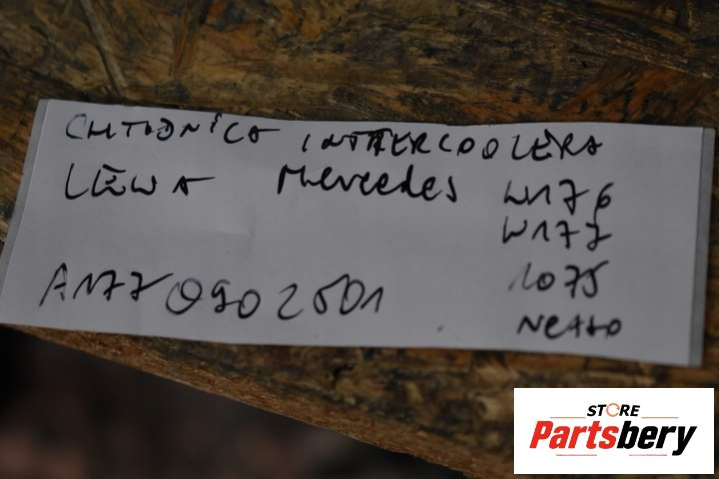 CHŁODNICA INTERCOOLERA
LEWA Mercedes W176
W177
A1770902501
1075
STORE
Partsbery